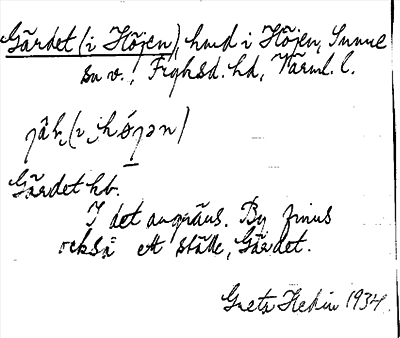 Gärdet (i Höjen), hmd i Höjen, Sunne
sn v., Fryksd. hd, Värml. l.
Gärdet hb.
I det angräns. By finns
också ett ställe, Gärdet.
Greta Hedin 1934.